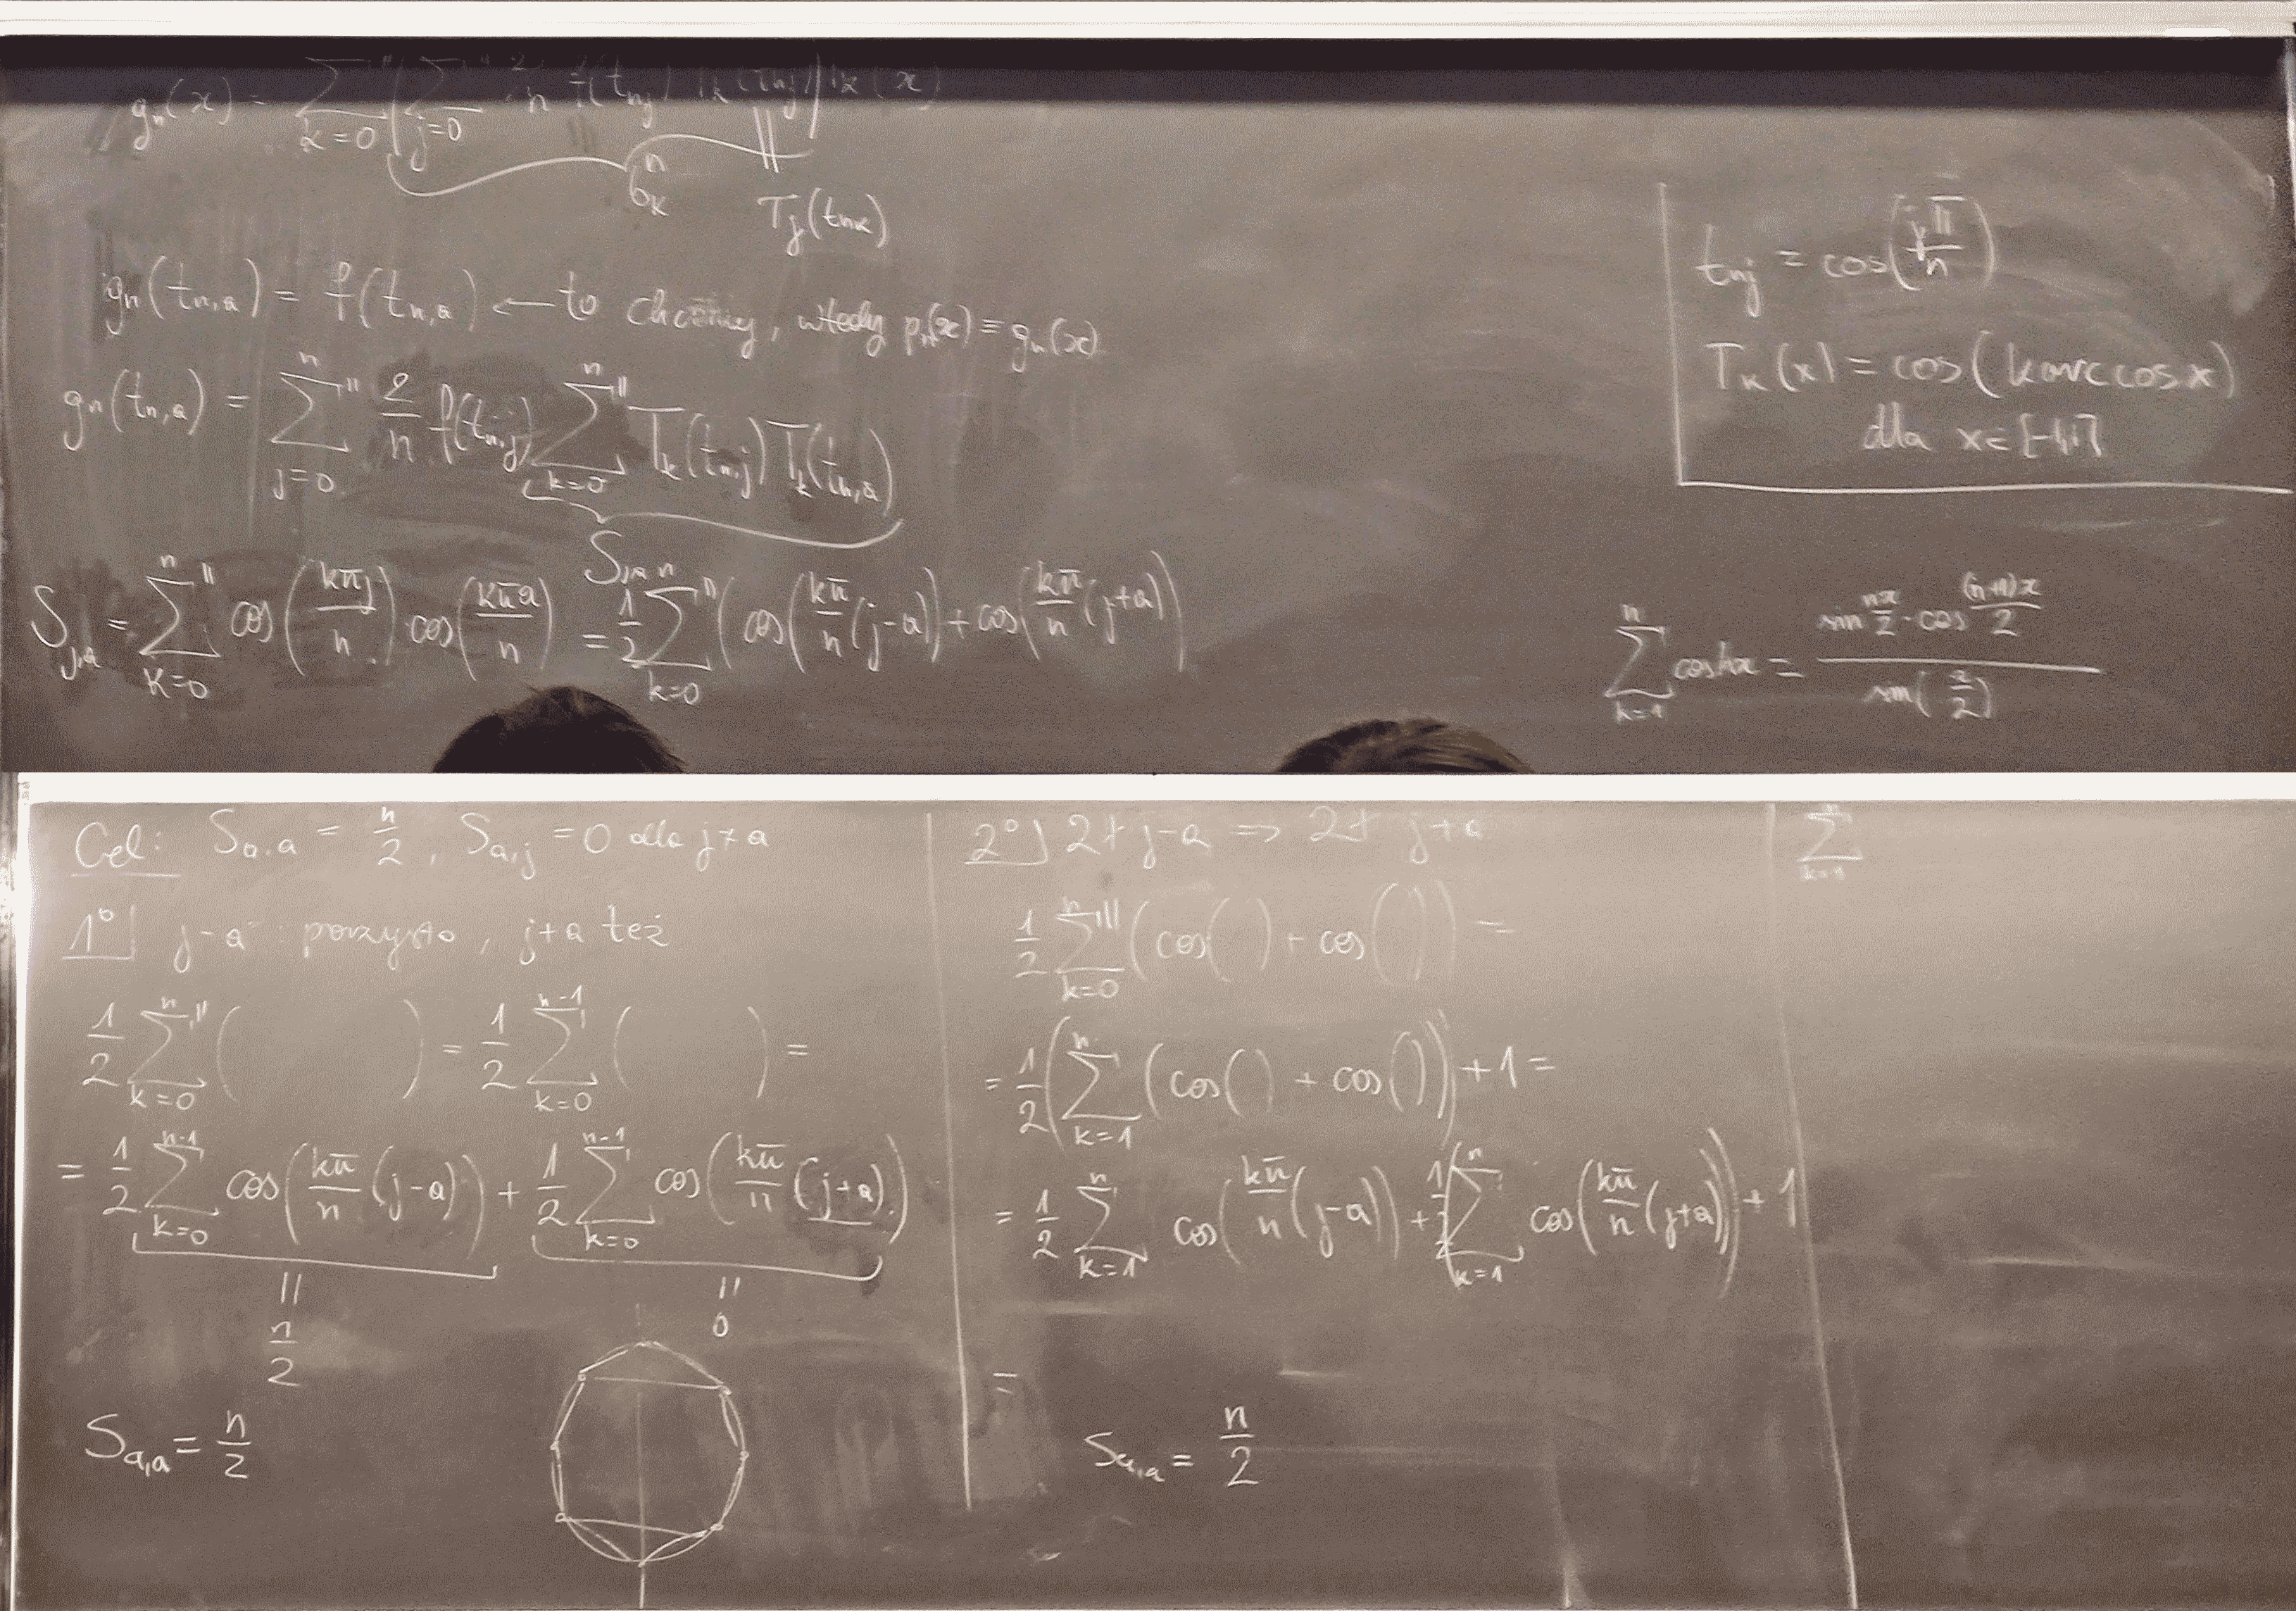 gₙ(x) = Σ''_{k=0} ( Σ''_{j=0} 2/n f(t_{nj}) T_k(t_{nj}) ) T_k(x)
b_k^n
T_j(t_{nk})
gₙ(t_{n,a}) = f(t_{n,a}) ← to chcemy, wtedy pₙ(x) ≡ gₙ(x)
gₙ(t_{n,a}) = Σ''_{j=0}^{n} 2/n f(t_{n,j}) Σ''_{k=0}^{n} T_k(t_{n,j}) T_k(t_{n,a})
S_{j,a}
S_{j,a} = Σ''_{k=0}^{n} cos(kπj/n) · cos(kπa/n) = 1/2 Σ''_{k=0}^{n} (cos(kπ/n (j-a)) + cos(kπ/n (j+a)))
t_{nj} = cos(jπ/n)
T_k(x) = cos(k arccos x)
dla x ∈ [-1,1]
Σ_{k=1}^{n} cos kx = (sin nx/2 · cos (n+1)x/2) / sin(x/2)
Cel: S_{a,a} = n/2, S_{a,j} = 0 dla j ≠ a
1° j-a parzysto, j+a też
1/2 Σ''_{k=0}^{n} ( ) = 1/2 Σ_{k=0}^{n-1} ( ) =
= 1/2 Σ_{k=0}^{n-1} cos(kπ/n (j-a)) + 1/2 Σ_{k=0}^{n-1} cos(kπ/n (j+a))
|| ||
n/2 0
S_{a,a} = n/2
2° 2∤ j-a => 2∤ j+a
1/2 Σ'''_{k=0}^{n} (cos( ) + cos( )) =
= 1/2 (Σ_{k=1}^{n} (cos( ) + cos( ))) + 1 =
= 1/2 Σ_{k=1}^{n} cos(kπ/n (j-a)) + 1/2 (Σ_{k=1}^{n} cos(kπ/n (j+a))) + 1
=
S_{a,a} = n/2
Σ_{k=1}^{n}